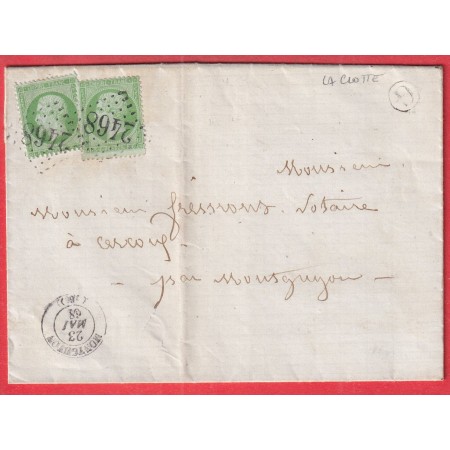 LA CLOTTE
2468
2468
Monsieur
Monsieur Fressions, Notaire
à Cercoux
— par Montguyon —
MONTGUYON
23
MAI
68